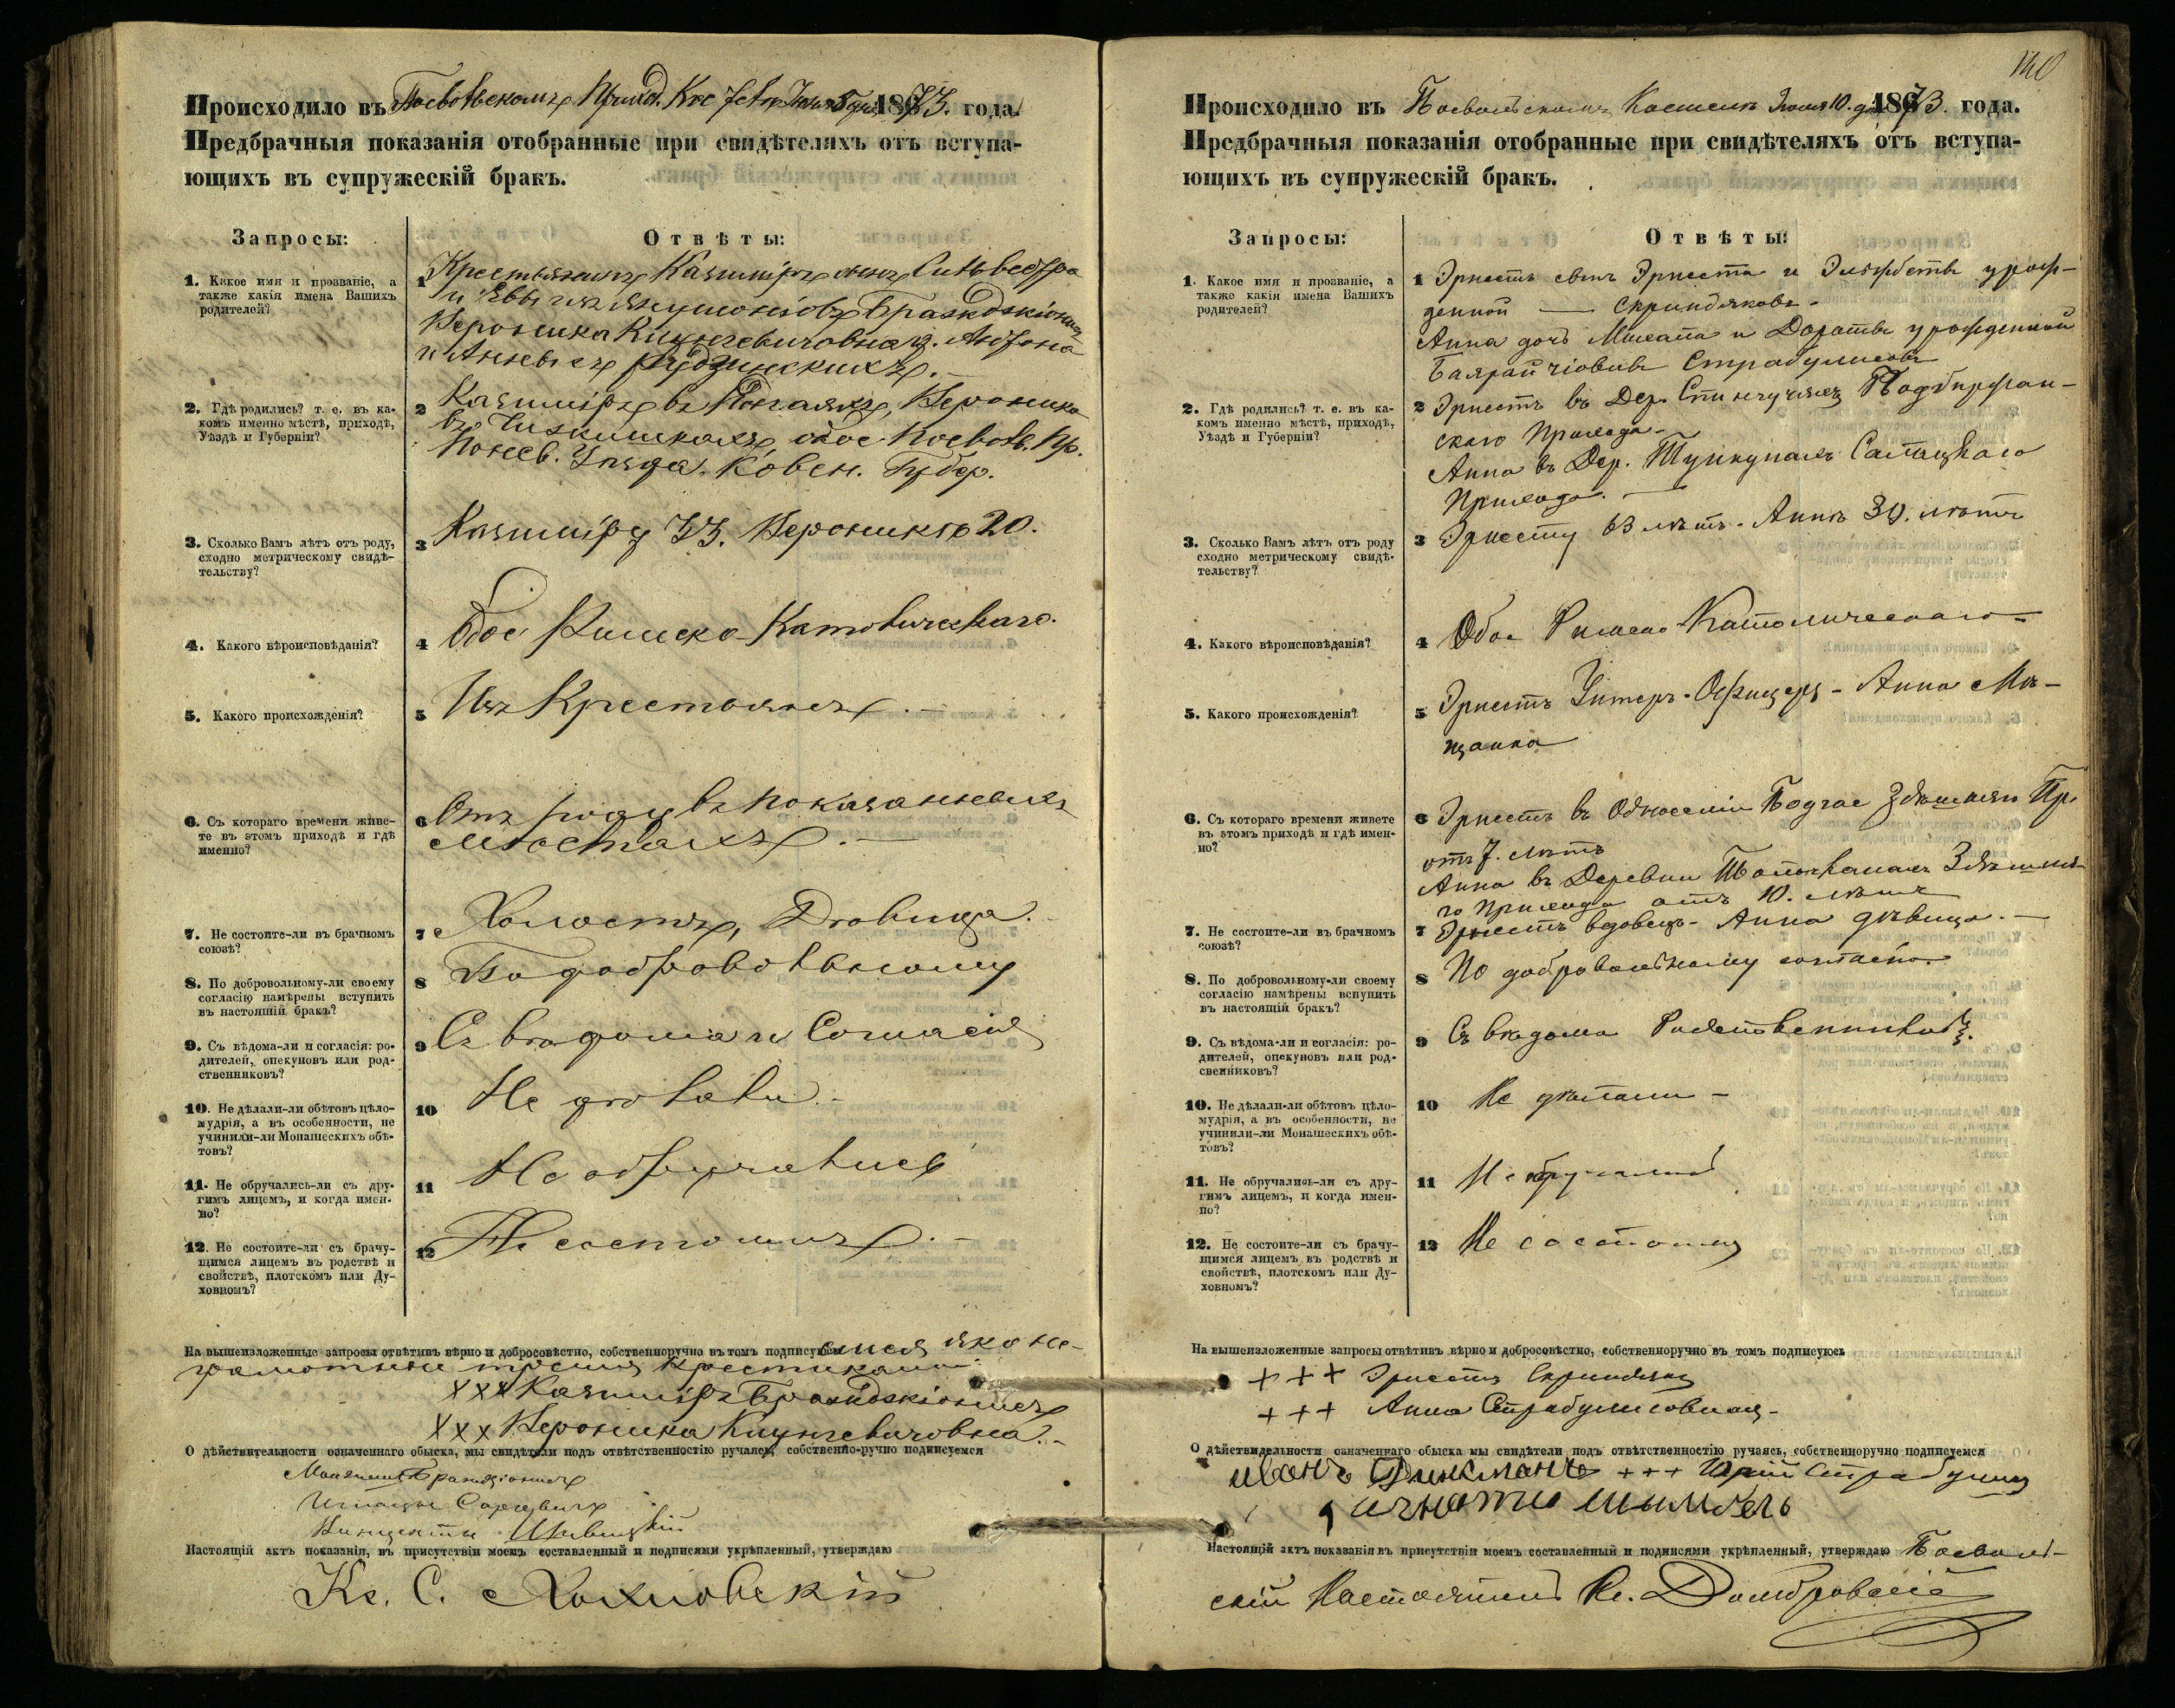 Происходило въ Посвольскомъ Приход. Кос 1873. года.
Предбрачныя показанія отобранные при свидѣтеляхъ отъ вступа-
ющихъ въ супружескій бракъ.
Запросы: Отвѣты:
1. Какое имя и прозваніе, а
также какія имена Вашихъ
родителей?
1 Крестьянинъ Казиміръ сынъ Сильвестра
и Евы
Вероника Кицунгевичовна
и Анны съ
2. Гдѣ родились? т. е. въ ка-
комъ именно мѣстѣ, приходѣ,
Уѣздѣ и Губерніи?
2 Казиміръ въ Вероника
въ обое Посволь. Пр.
Понев. Уѣзда. Ковен. Губер.
3. Сколько Вамъ лѣтъ отъ роду,
сходно метрическому свидѣ-
тельству?
3 Казиміру 33. Вероникѣ 20.
4. Какого вѣроисповѣданія?
4 Обое Римско Католическаго.
5. Какого происхожденія?
5 Изъ Крестьянъ.
6. Съ котораго времени живе-
те въ этомъ приходѣ и гдѣ
именно?
6 Отъ роду въ показанныхъ
мѣстахъ.
7. Не состоите-ли въ брачномъ
союзѣ?
7 Холостъ, Дѣвица.
8. По добровольному-ли своему
согласію намѣрены вступить
въ настоящій бракъ?
8 По добровольному
9. Съ вѣдома-ли и согласія: ро-
дителей, опекуновъ или род-
ственниковъ?
9 Съ вѣдома и Согласія
10. Не дѣлали-ли обѣтовъ цѣло-
мудрія, а въ особенности, не
учинили-ли Монашескихъ обѣ-
товъ?
10 Не дѣлали
11. Не обручались-ли съ дру-
гимъ лицемъ, и когда имен-
но?
11 Не обручались
12. Не состоите-ли съ брачу-
щимся лицемъ въ родствѣ и
свойствѣ, плотскомъ или Ду-
ховномъ?
12 Не состоимъ.
На вышеизложенные запросы отвѣтивъ вѣрно и добросовѣстно, собственноручно въ томъ подписуемся яко не-
грамотные тремя крестиками
XXX Казиміръ
XXX Вероника Кицунгевичовна.
О дѣйствительности означеннаго обыска, мы свидѣтели подъ отвѣтственностію ручаясь, собственно-ручно подписуемся
Настоящій актъ показанія, въ присутствіи моемъ составленный и подписями укрѣпленный, утверждаю
Кс. С. Хохловскій
140
Происходило въ Посвольскомъ Костелѣ 10. дня 1873. года.
Предбрачныя показанія отобранные при свидѣтеляхъ отъ вступа-
ющихъ въ супружескій бракъ.
Запросы: Отвѣты:
1. Какое имя и прозваніе, а
также какія имена Вашихъ
родителей?
1 Эрнестъ сынъ Эрнеста и Элжбеты урож-
денной — Скриндзяковъ
Анна дочь Михала и Дороты урожденной
Страбулисовъ
2. Гдѣ родились? т. е. въ ка-
комъ именно мѣстѣ, приходѣ,
Уѣздѣ и Губерніи?
2 Эрнестъ въ Дер. Подбиржан-
скаго Прихода
Анна въ Дер. Салацкаго
Прихода. —
3. Сколько Вамъ лѣтъ отъ роду
сходно метрическому свидѣ-
тельству?
3 Эрнесту 63 лѣтъ. Аннѣ 30. лѣтъ
4. Какого вѣроисповѣданія?
4 Обое Римско Католическаго
5. Какого происхожденія?
5 Эрнестъ Унтеръ-Офицеръ - Анна Мѣ-
щанка
6. Съ котораго времени живете
въ этомъ приходѣ и гдѣ имен-
но?
6 Эрнестъ въ Пр.
отъ 7. лѣтъ
Анна въ Деревни
го Прихода отъ 10. лѣтъ
7. Не состоите-ли въ брачномъ
союзѣ?
7 Эрнестъ вдовецъ - Анна дѣвица. —
8. По добровольному-ли своему
согласію намѣрены вспунить
въ настоящій бракъ?
8 По добровольному согласію
9. Съ вѣдома-ли и согласія: ро-
дителей, опекуновъ или род-
свенниковъ?
9 Съ вѣдома Родственниковъ.
10. Не дѣлали-ли обѣтовъ цѣло-
мудрія, а въ особенности, не
учинили-ли Монашескихъ обѣ-
товъ?
10 Не дѣлали —
11. Не обручались-ли съ дру-
гимъ лицемъ, и когда имен-
но?
11 Не обручались
12. Не состоите-ли съ брачу-
щимся лицемъ въ родствѣ и
свойствѣ, плотскомъ или Ду-
ховномъ?
12 Не состоимъ
На вышеизложенные запросы отвѣтивъ вѣрно и добросовѣстно, собственноручно въ томъ подписуюсь
+++ Эрнестъ Скриндзякъ
+++ Анна Страбулисовна
О дѣйствидельности означеннаго обыска мы свидѣтели подъ отвѣтственностію ручаясь, собственноручно подписуемся
иванъ Дикманъ +++ Юрій Страбулисъ
игнатъ
Настоящій актъ показанія въ присутствіи моемъ составленный и подписями укрѣпленный, утверждаю Посволь-
скій Настоятель Кс. Домбровскій